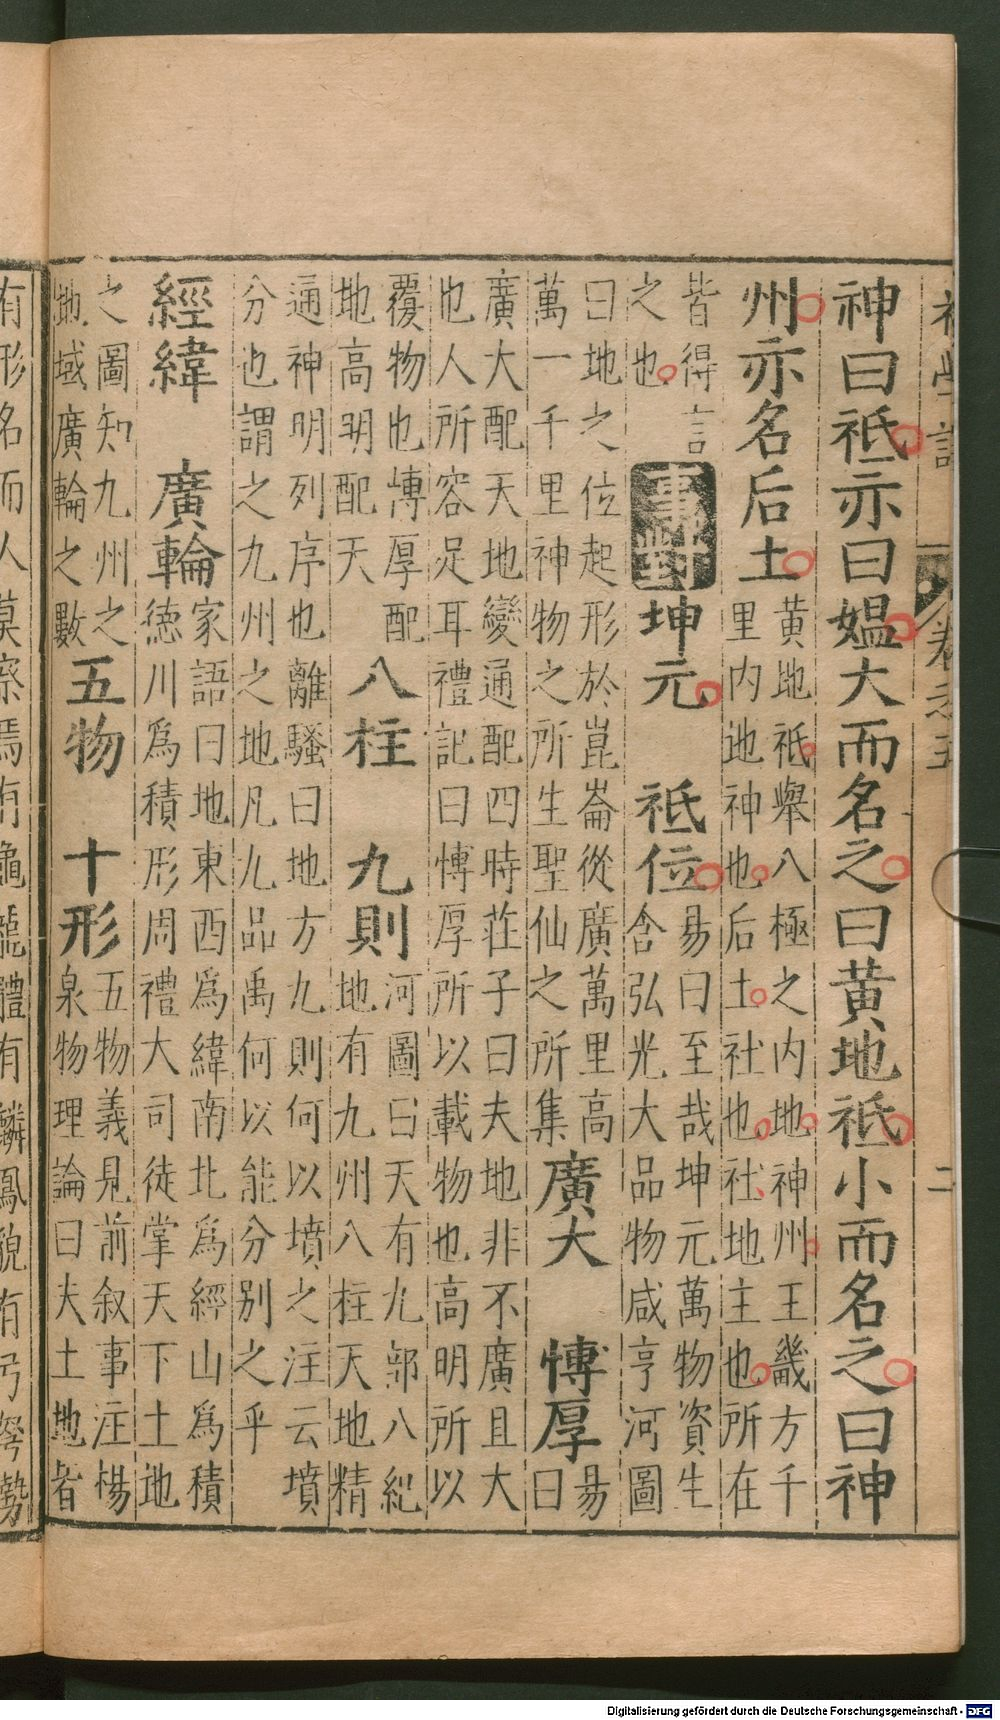 卷之五
二
神曰祗亦曰媪大而名之曰黃地祗小而名之曰神
州亦名后土
黃地祗舉八極之內地神州王畿方千
里內地神也后土社也社地主也所在
皆得言
之也
事對
坤元　祗位
易曰至哉坤元萬物資生
含弘光大品物咸亨河圖
曰地之位起形於崑崙從廣萬里高
萬一千里神物之所生聖仙之所集
廣大　博厚
易
曰
廣大配天地變通配四時莊子曰夫地非不廣且大
也人所容足耳禮記曰博厚所以載物也高明所以
覆物也博厚配
地高明配天
八柱　九則
河圖曰天有九部八紀
地有九州八柱天地精
通神明列序也　離騷曰地方九則何以墳之注云墳
分也謂之九州之地凡九品禹何以能分別之乎
經緯　廣輪
家語曰地東西爲緯南北爲經山爲積
德川爲積形周禮大司徒掌天下土地
之圖知九州之
地域廣輪之數
五物　十形
五物義見前叙事注楊
泉物理論曰夫土地者
有形名而人莫察焉有龜龍體有鱗鳳貌有弓弩勢
Digitalisierung gefördert durch die Deutsche Forschungsgemeinschaft - DFG